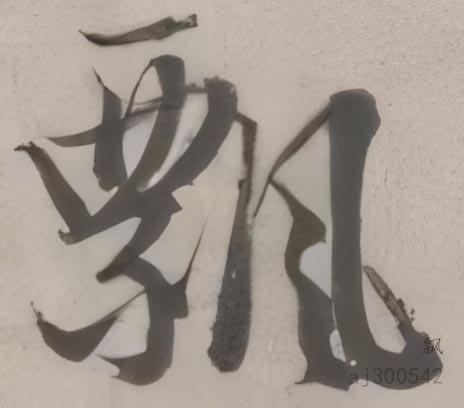 飘
飘
aj300542